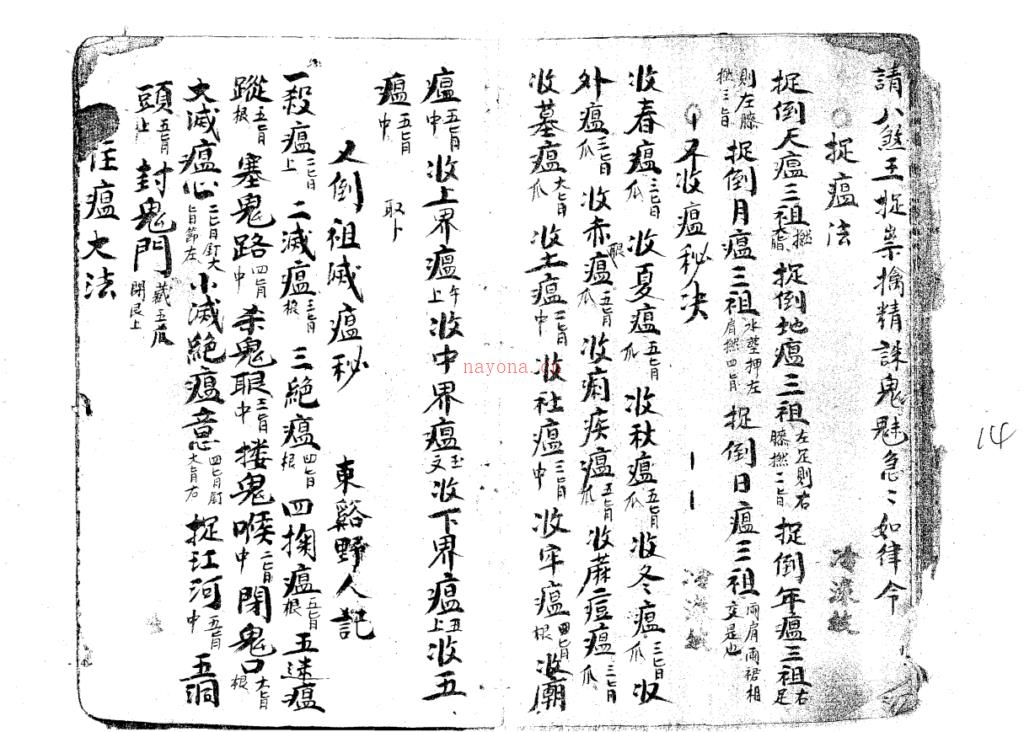 請八煞王捉祟擒精誅鬼魅急〻如律令
捉瘟法
捉倒天瘟三祖 捉倒地瘟三祖左足則右膝撚二旨 捉倒年瘟三祖右足
則左膝撚三旨 捉倒月瘟三祖 押左肩撚四旨 捉倒日瘟三祖兩肩兩裙相交是也
又收瘟秘决
收春瘟三旨爪 收夏瘟五旨爪 收秋瘟五旨爪 收冬瘟三旨爪 收
外瘟三旨爪 收赤眼瘟五旨爪 收痢疾瘟五旨爪 收蔴痘瘟三旨爪
收墓瘟大旨爪 收土瘟二旨中 收社瘟三旨中 收牢瘟四旨根 收廟
瘟五旨中 收上界瘟午上 收中界瘟玉文 收下界瘟丑上 收五
瘟五旨中 取卜
又倒祖滅瘟秘 東谿野人記
一殺瘟二旨上 二滅瘟三旨根 三絕瘟四旨根 四掬瘟五旨根 五速瘟
蹤五旨根 塞鬼路四旨中 杀鬼眼三旨中 摟鬼喉二旨中 閉鬼口大旨根
大滅瘟心二旨釘大旨節左 小滅絕瘟意四旨釘大旨右 捉江河五旨中 五洞
頭五旨上 封鬼門藏五爪閉艮上
住瘟大法
14
nayona.cn